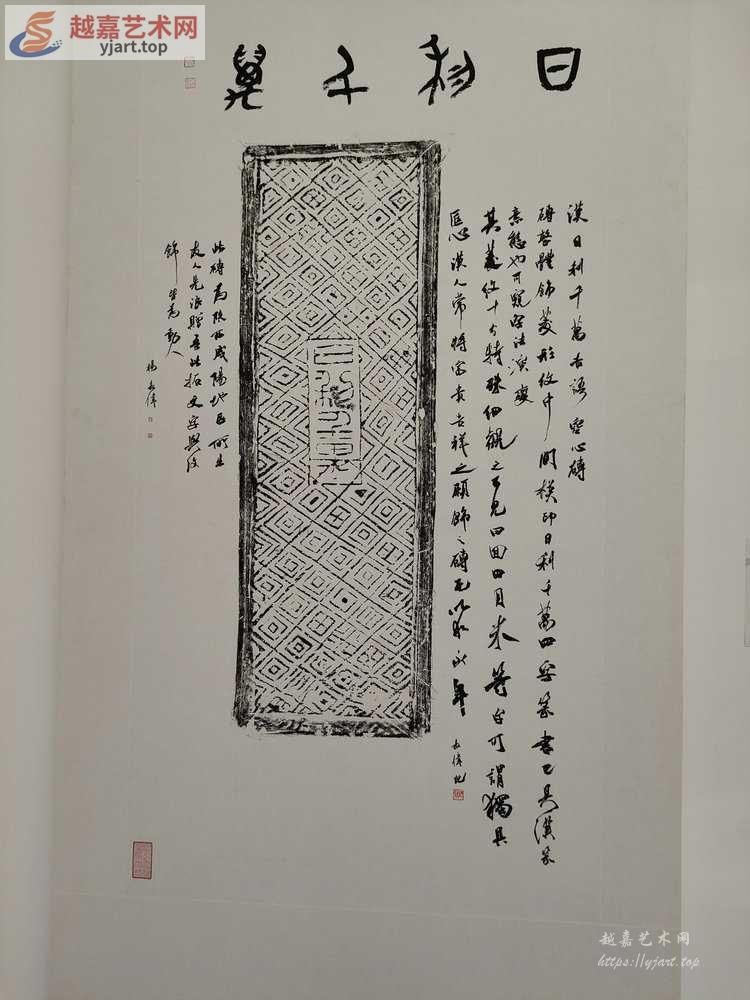 越嘉艺术网
yjart.top
日利千萬
漢日利千萬吉語空心磚
磚整體飾菱形紋中間模印日利千萬四字篆書已具漢篆
意態也可窺字法演變
其菱紋十分特殊細觀之可見四田四目米等字可謂獨具
匠心漢人常將富貴吉祥之願飾之磚瓦以取永年
此磚為陝西咸陽地區所出
友人先派贈吾此拓文字與紋
飾皆為動人
越嘉艺术网
https://yjart.top